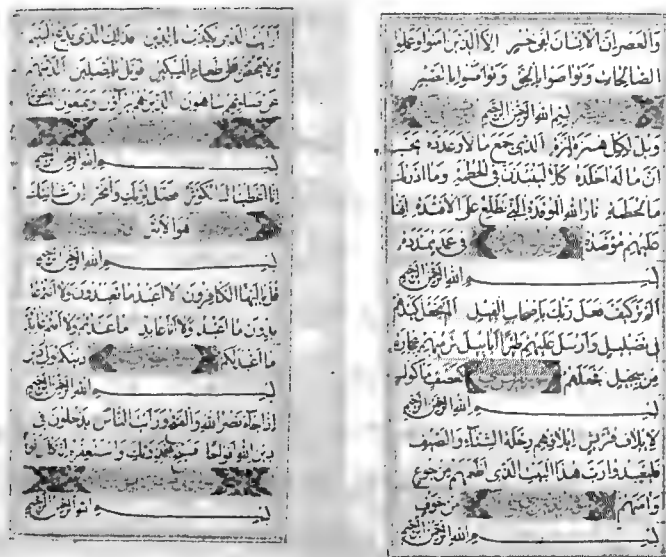 وَالْعَصْرِ إِنَّ الْإِنْسَانَ لَفِي خُسْرٍ إِلَّا الَّذِينَ آمَنُوا وَعَمِلُوا
الصَّالِحَاتِ وَتَوَاصَوْا بِالْحَقِّ وَتَوَاصَوْا بِالصَّبْرِ
بِسْمِ اللَّهِ الرَّحْمَنِ الرَّحِيمِ
وَيْلٌ لِكُلِّ هُمَزَةٍ لُمَزَةٍ الَّذِي جَمَعَ مَالًا وَعَدَّدَهُ يَحْسَبُ
أَنَّ مَالَهُ أَخْلَدَهُ كَلَّا لَيُنْبَذَنَّ فِي الْحُطَمَةِ وَمَا أَدْرَاكَ
مَا الْحُطَمَةُ نَارُ اللَّهِ الْمُوقَدَةُ الَّتِي تَطَّلِعُ عَلَى الْأَفْئِدَةِ إِنَّهَا
عَلَيْهِمْ مُؤْصَدَةٌ فِي عَمَدٍ مُمَدَّدَةٍ
بِسْمِ اللَّهِ الرَّحْمَنِ الرَّحِيمِ
أَلَمْ تَرَ كَيْفَ فَعَلَ رَبُّكَ بِأَصْحَابِ الْفِيلِ أَلَمْ يَجْعَلْ كَيْدَهُمْ
فِي تَضْلِيلٍ وَأَرْسَلَ عَلَيْهِمْ طَيْرًا أَبَابِيلَ تَرْمِيهِمْ بِحِجَارَةٍ
مِنْ سِجِّيلٍ فَجَعَلَهُمْ كَعَصْفٍ مَأْكُولٍ
بِسْمِ اللَّهِ الرَّحْمَنِ الرَّحِيمِ
لِإِيلَافِ قُرَيْشٍ إِيلَافِهِمْ رِحْلَةَ الشِّتَاءِ وَالصَّيْفِ
فَلْيَعْبُدُوا رَبَّ هَذَا الْبَيْتِ الَّذِي أَطْعَمَهُمْ مِنْ جُوعٍ
وَآمَنَهُمْ مِنْ خَوْفٍ
بِسْمِ اللَّهِ الرَّحْمَنِ الرَّحِيمِ
أَرَأَيْتَ الَّذِي يُكَذِّبُ بِالدِّينِ فَذَلِكَ الَّذِي يَدُعُّ الْيَتِيمَ
وَلَا يَحُضُّ عَلَى طَعَامِ الْمِسْكِينِ فَوَيْلٌ لِلْمُصَلِّينَ الَّذِينَ هُمْ
عَنْ صَلَاتِهِمْ سَاهُونَ الَّذِينَ هُمْ يُرَاءُونَ وَيَمْنَعُونَ الْمَاعُونَ
بِسْمِ اللَّهِ الرَّحْمَنِ الرَّحِيمِ
إِنَّا أَعْطَيْنَاكَ الْكَوْثَرَ فَصَلِّ لِرَبِّكَ وَانْحَرْ إِنَّ شَانِئَكَ
هُوَ الْأَبْتَرُ
بِسْمِ اللَّهِ الرَّحْمَنِ الرَّحِيمِ
قُلْ يَا أَيُّهَا الْكَافِرُونَ لَا أَعْبُدُ مَا تَعْبُدُونَ وَلَا أَنْتُمْ عَا
بِدُونَ مَا أَعْبُدُ وَلَا أَنَا عَابِدٌ مَا عَبَدْتُمْ وَلَا أَنْتُمْ عَابِدُونَ
مَا أَعْبُدُ لَكُمْ دِينُكُمْ وَلِيَ دِينِ
بِسْمِ اللَّهِ الرَّحْمَنِ الرَّحِيمِ
إِذَا جَاءَ نَصْرُ اللَّهِ وَالْفَتْحُ وَرَأَيْتَ النَّاسَ يَدْخُلُونَ فِي
دِينِ اللَّهِ أَفْوَاجًا فَسَبِّحْ بِحَمْدِ رَبِّكَ وَاسْتَغْفِرْهُ إِنَّهُ كَانَ تَوَّابًا
بِسْمِ اللَّهِ الرَّحْمَنِ الرَّحِيمِ